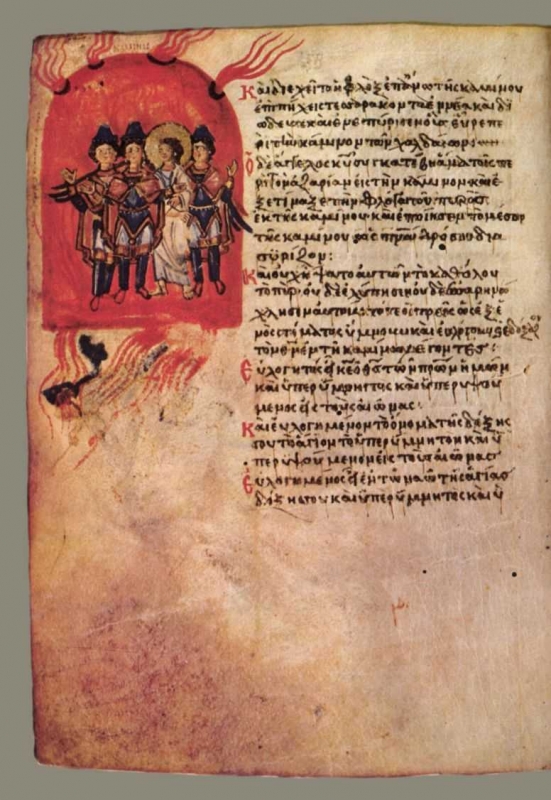 Καὶ διεχεῖτο ἡ φλὸξ ἐπάνω τῆς καμίνου
ἐπὶ πήχεις τεσσαράκοντα ἐννέα καὶ δι
ώδευσε καὶ ἐνεπύρισεν οὓς εὗρε πε
ρὶ τὴν κάμινον τῶν χαλδαίων
Ὁ δὲ ἄγγελος κυ συγκατέβη ἅμα τοῖς πε
ρὶ τὸν ἀζαρίαν εἰς τὴν κάμινον καὶ ἐ
ξετίναξε τὴν φλόγα τοῦ πυρὸς
ἐκ τῆς καμίνου καὶ ἐποίησεν τὸ μέσον
τῆς καμίνου ὡς πνα δρόσου δια
συρίζον:
Καὶ οὐχ ἥψατο αὐτῶν τὸ καθόλου
τὸ πῦρ· οὐδὲ ἐλύπησεν οὐδὲ παρηνώ
χλησεν αὐτοῖς· τότε οἱ τρεῖς ὡς ἐξ ἑ
νὸς στόματος ὕμνουν καὶ εὐλόγουν
τὸν θν ἐν τῇ καμίνῳ λέγοντες:
Εὐλογητὸς εἶ κε ὁ θς τῶν πρων ἡμῶν
καὶ ὑπερύμνητος καὶ ὑπερυψού
μενος εἰς τοὺς αἰῶνας:
Καὶ εὐλογημένον τὸ ὄνομα τῆς δόξης
σου τὸ ἅγιον τὸ ὑπερύμνητον καὶ ὑ
περυψούμενον εἰς τοὺς αἰῶνας
Εὐλογημένος εἶ ἐν τῷ ναῷ τῆς ἁγίας
δόξης σου καὶ ὑπερύμνητος καὶ ὑ